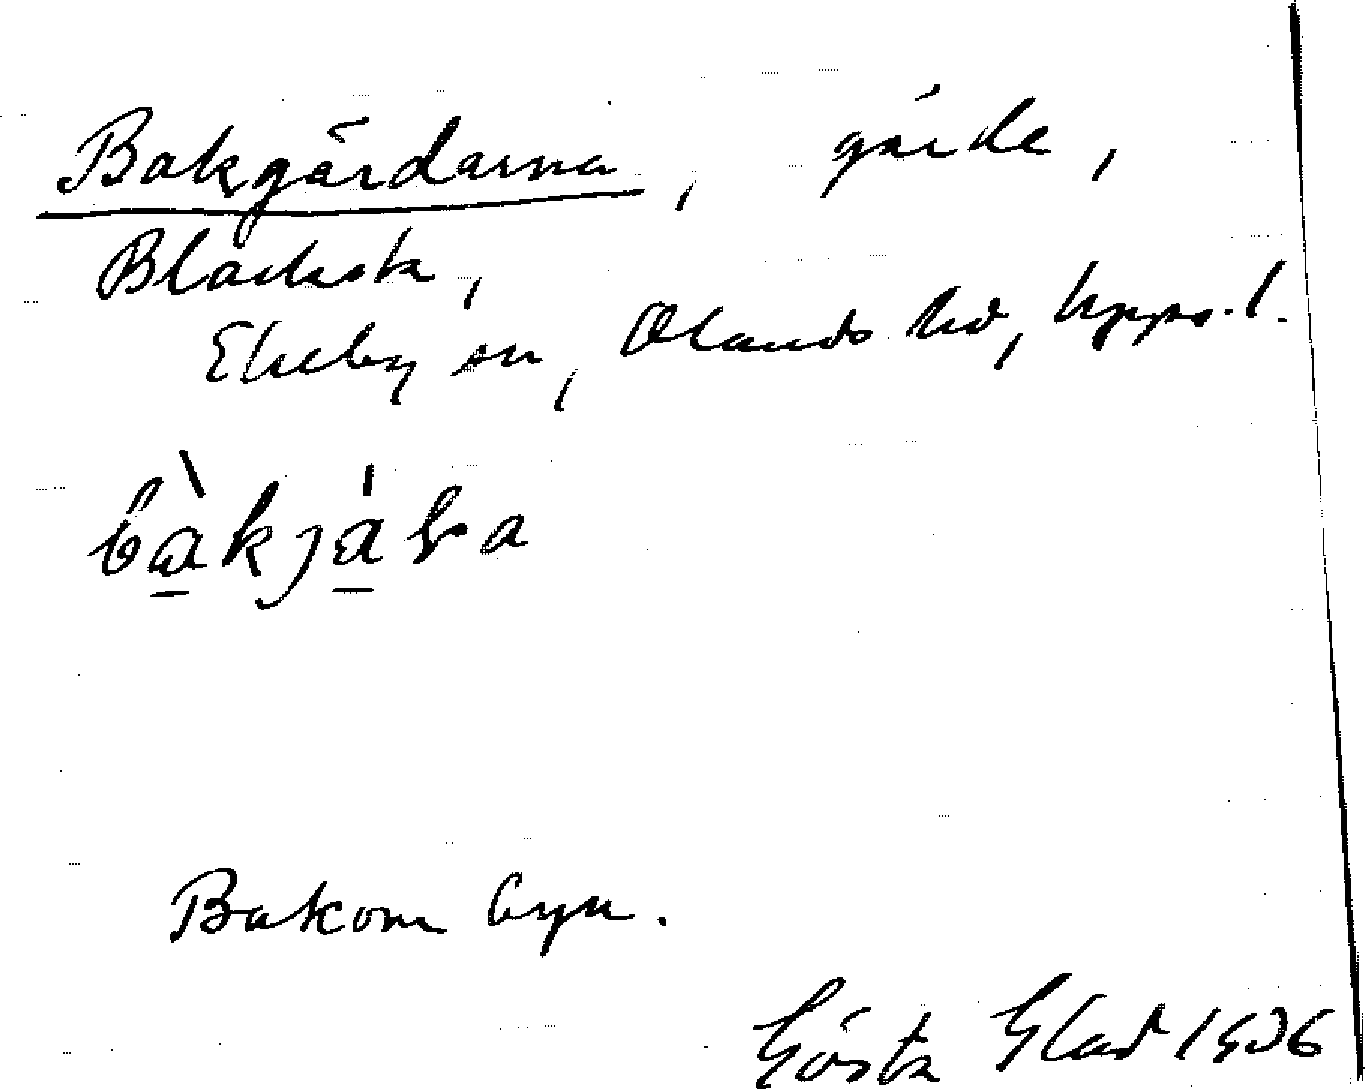 Bakgärdarna, gärde,
Blacksta,
Ekeby sn, Olands hd, Upps. l.
Bakom byn.
Gösta Glad 1936